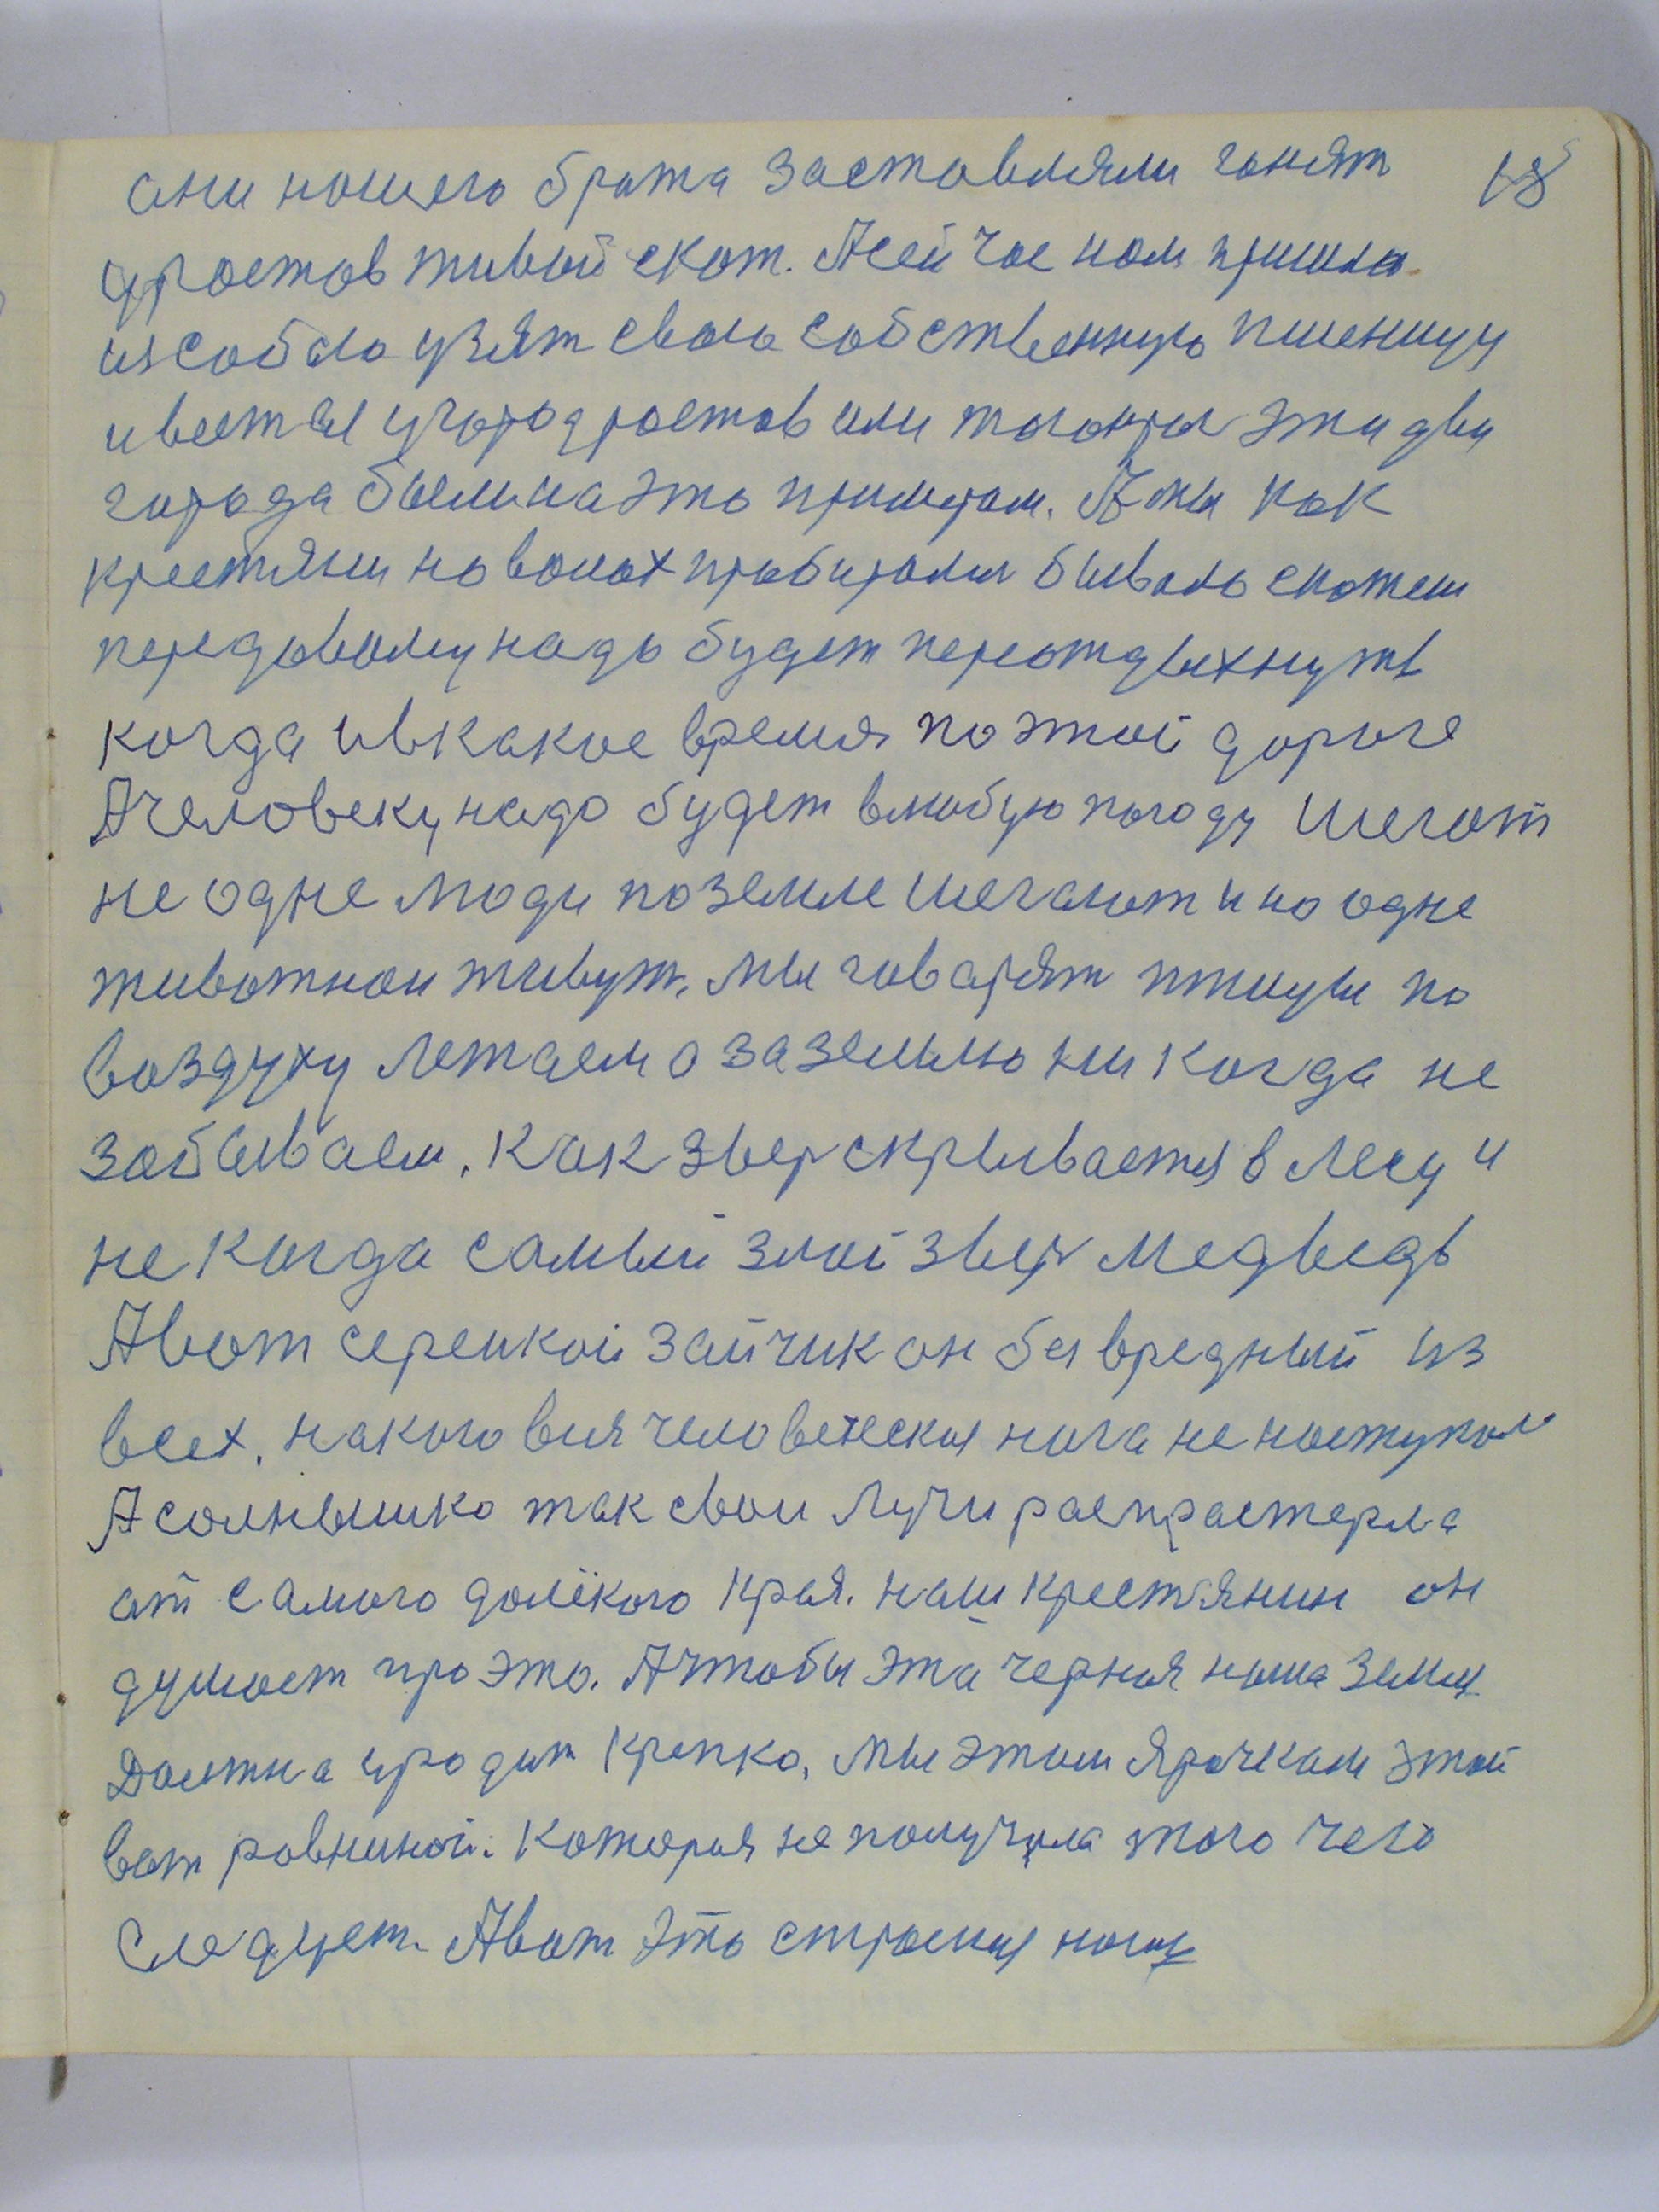 они нашего брата заставляли ганят 18
уростов живой скот. Асейчас нам пришла
изсобою узят свою собственную пшеницу
ивести угород ростов или таганрог эти два
города были на это примерам. А мы как
крестяни на волах прабирались бывало скажеш
передовому надо будет переотдыхнуть
когда ивкакое время по этой дороге
Ачеловеку надо будет влюбую погоду шегат
не одне люди по земле шегают и но одне
животнои живут. Мы говарят птицы по
воздуху летаем а за землю ни когда не
забываем. Как звер скрывается в лесу и
не когда самый злой звер медведь
Авот серенкой зайчик он безвредный из
всех. на кого вся человеческая нага не наступала
А солнышко так свои лучи распрастерла
от самого далёкого края. наш крестянин он
думает про это. А чтобы эта черная наша земля
должна уродит крепко, мы этим ярочкам этой
вот равниной. Которая не получила того чего
следует. Авот это страшная